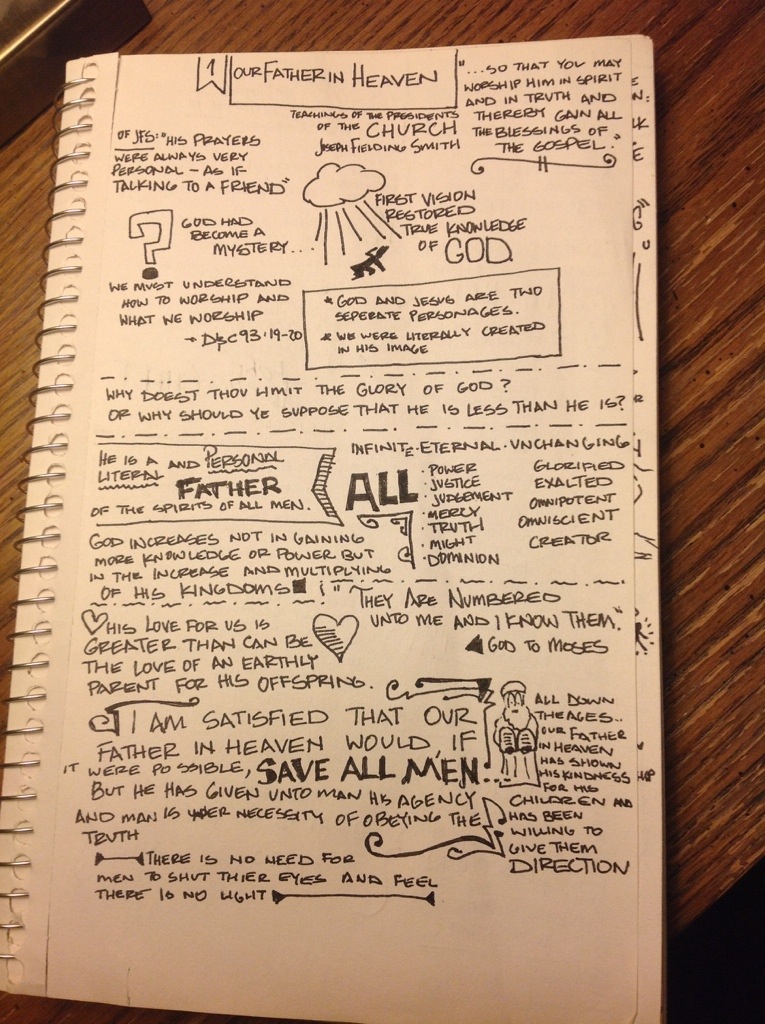 1
OUR FATHER IN HEAVEN
TEACHINGS OF THE PRESIDENTS
OF THE CHURCH
JOSEPH FIELDING SMITH
"...SO THAT YOU MAY
WORSHIP HIM IN SPIRIT
AND IN TRUTH AND
THEREBY GAIN ALL
THE BLESSINGS OF
THE GOSPEL."
OF JFS: "HIS PRAYERS
WERE ALWAYS VERY
PERSONAL - AS IF
TALKING TO A FRIEND"
?
GOD HAD
BECOME A
MYSTERY...
FIRST VISION
RESTORED
TRUE KNOWLEDGE
OF GOD.
WE MUST UNDERSTAND
HOW TO WORSHIP AND
WHAT WE WORSHIP
- D&C 93:19-20
* GOD AND JESUS ARE TWO
SEPERATE PERSONAGES.
* WE WERE LITERALLY CREATED
IN HIS IMAGE
WHY DOEST THOU LIMIT THE GLORY OF GOD?
OR WHY SHOULD YE SUPPOSE THAT HE IS LESS THAN HE IS?
HE IS A LITERAL AND PERSONAL
FATHER
OF THE SPIRITS OF ALL MEN.
INFINITE · ETERNAL · UNCHANGING
ALL
· POWER
· JUSTICE
· JUDGEMENT
· MERCY
· TRUTH
· MIGHT
· DOMINION
GLORIFIED
EXALTED
OMNIPOTENT
OMNISCIENT
CREATOR
GOD INCREASES NOT IN GAINING
MORE KNOWLEDGE OR POWER BUT
IN THE INCREASE AND MULTIPLYING
OF HIS KINGDOMS
"THEY ARE NUMBERED
UNTO ME AND I KNOW THEM."
GOD TO MOSES
HIS LOVE FOR US IS
GREATER THAN CAN BE
THE LOVE OF AN EARTHLY
PARENT FOR HIS OFFSPRING.
I AM SATISFIED THAT OUR
FATHER IN HEAVEN WOULD, IF
IT WERE POSSIBLE, SAVE ALL MEN...
BUT HE HAS GIVEN UNTO MAN HIS AGENCY
AND MAN IS UNDER NECESSITY OF OBEYING THE
TRUTH
ALL DOWN
THE AGES..
OUR FATHER
IN HEAVEN
HAS SHOWN
HIS KINDNESS
FOR HIS
CHILDREN AND
HAS BEEN
WILLING TO
GIVE THEM
DIRECTION
THERE IS NO NEED FOR
MEN TO SHUT THIER EYES AND FEEL
THERE IS NO LIGHT